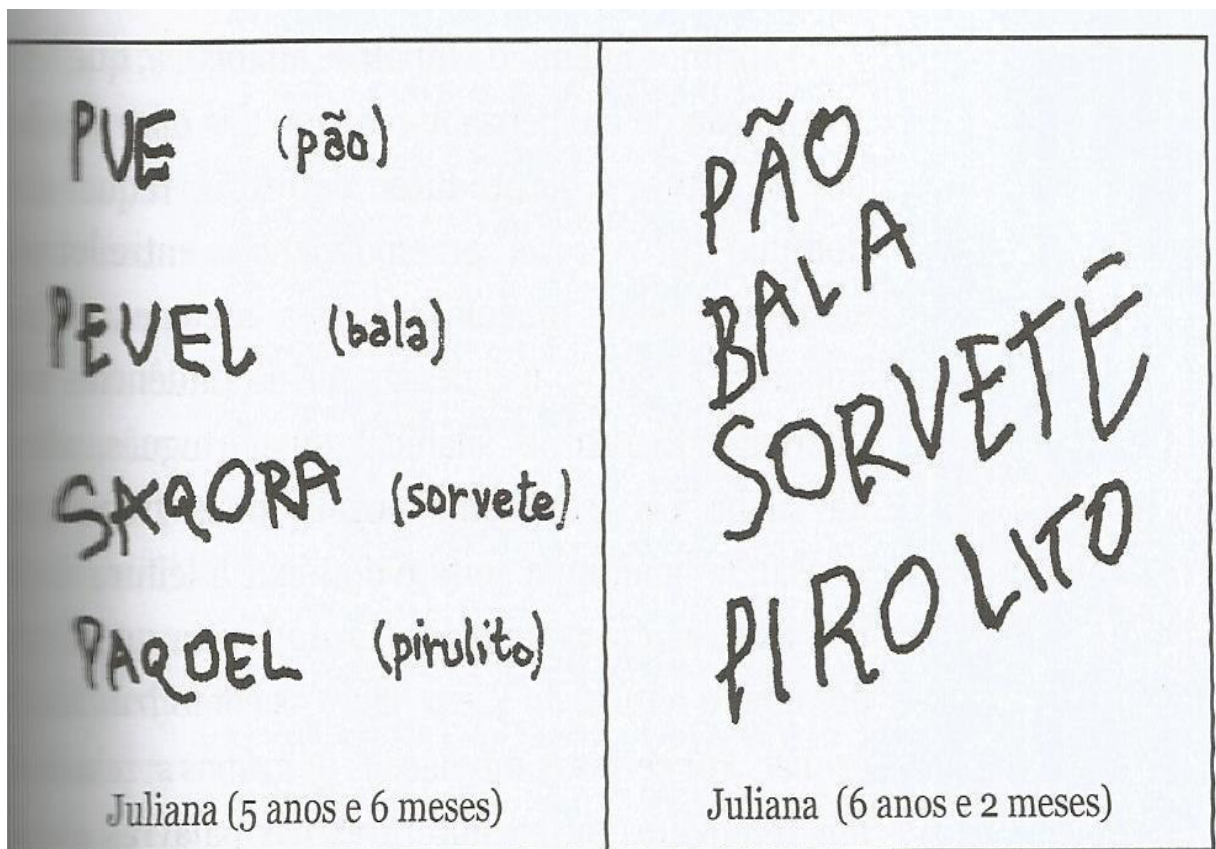 PUE (pão)
PEVEL (bala)
SAQORA (sorvete)
PAQOEL (pirulito)
Juliana (5 anos e 6 meses)
PÃO
BALA
SORVETÉ
PIROLITO
Juliana (6 anos e 2 meses)